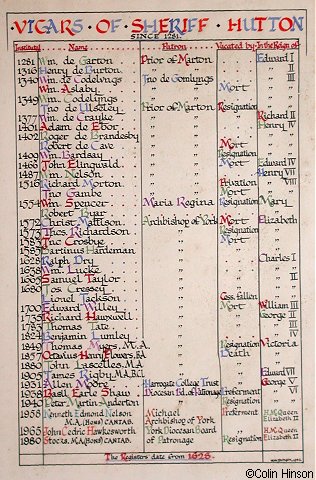 VICARS · OF · SHERIFF · HUTTON
SINCE 1281.
Instituted Name Patron Vacated by In the Reign of
1281 Wm. de Garton Prior of Marton Edward I
1316 Henry de Burton " " II
1349 Wm. de Codelyngs Tno de Gomlyngs " III
Wm. Aslaby Mort "
1349 Wm. Codelyngs "
Tno de Ulstley Prior of Marton Resignation "
1377 Wm. de Crayke " Richard II
1401 Adam de Ebor " Henry IV
1402 Roger de Brandesby " Mort "
Robert de Cave " Resignation "
1409 Wm. Bardsay " Mort
1466 John Elingwald " Mort Edward IV
1487 Wm. Nelson " Henry VII
1516 Richard Morton " Privation VIII
Tno Gambe " Mort "
1554 Wm. Spencer Maria Regina Resignation Mary
Robert Byar "
1572 Christ. Mattison Archbishop of York Mort Elizabeth
1573 Thos. Richardson " Resignation "
1583 Tno Crosbye " Mort "
1587 Martinus Hardeman "
1628 Ralph Dry " Charles I
1638 Wm. Lucke "
1665 Samuel Taylor " II
1680 Tos. Cressey "
Lionel Jackson " Cess. fallen
1700 Edward Willey " Mort William III
1735 Richard Hawxwell " George II
1783 Thomas Tate " III
1824 Benjamin Lumley " IV
1849 Thomas Myers, M.A. " Resignation Victoria
1857 Octavius Henry Flowers, B.A. " Death
1880 John Lascelles, M.A. "
1905 James Rigby, M.A. B.C.L. " Edward VII
1931 Allen Moore Harrogate College Trust George V
1938 Basil Earle Shaw Diocesan Bd. of Patronage Preferment VI
1940 Peter Martin Anderton " Resignation
1958 Kenneth Edmond Nelson Michael Preferment H.M. Queen
M.A. (HONS) CANTAB. Archbishop of York Elizabeth II
1965 John Cedric Hawkesworth York Diocesan Board H.M. Queen
1980 Stocks. M.A. (HONS) CANTAB. of Patronage Resignation Elizabeth II
The Registers date from 1628.
©Colin Hinson